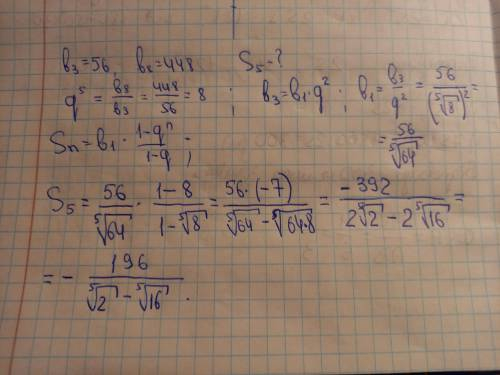 в₃=56, в₈=448 S₅-?
q⁵ = в₈/в₃ = 448/56 = 8 ; в₃=в₁·q² ; в₁= в₃/q² = 56/(⁵√8)² =
Sn=в₁· (1-qⁿ)/(1-q) ; = 56/⁵√64
S₅ = 56/⁵√64 · (1-8)/(1-⁵√8) = 56·(-7)/(⁵√64 - ⁵√64·8) = -392/(2⁵√2 - 2⁵√16) =
= - 196/(⁵√2 - ⁵√16) .